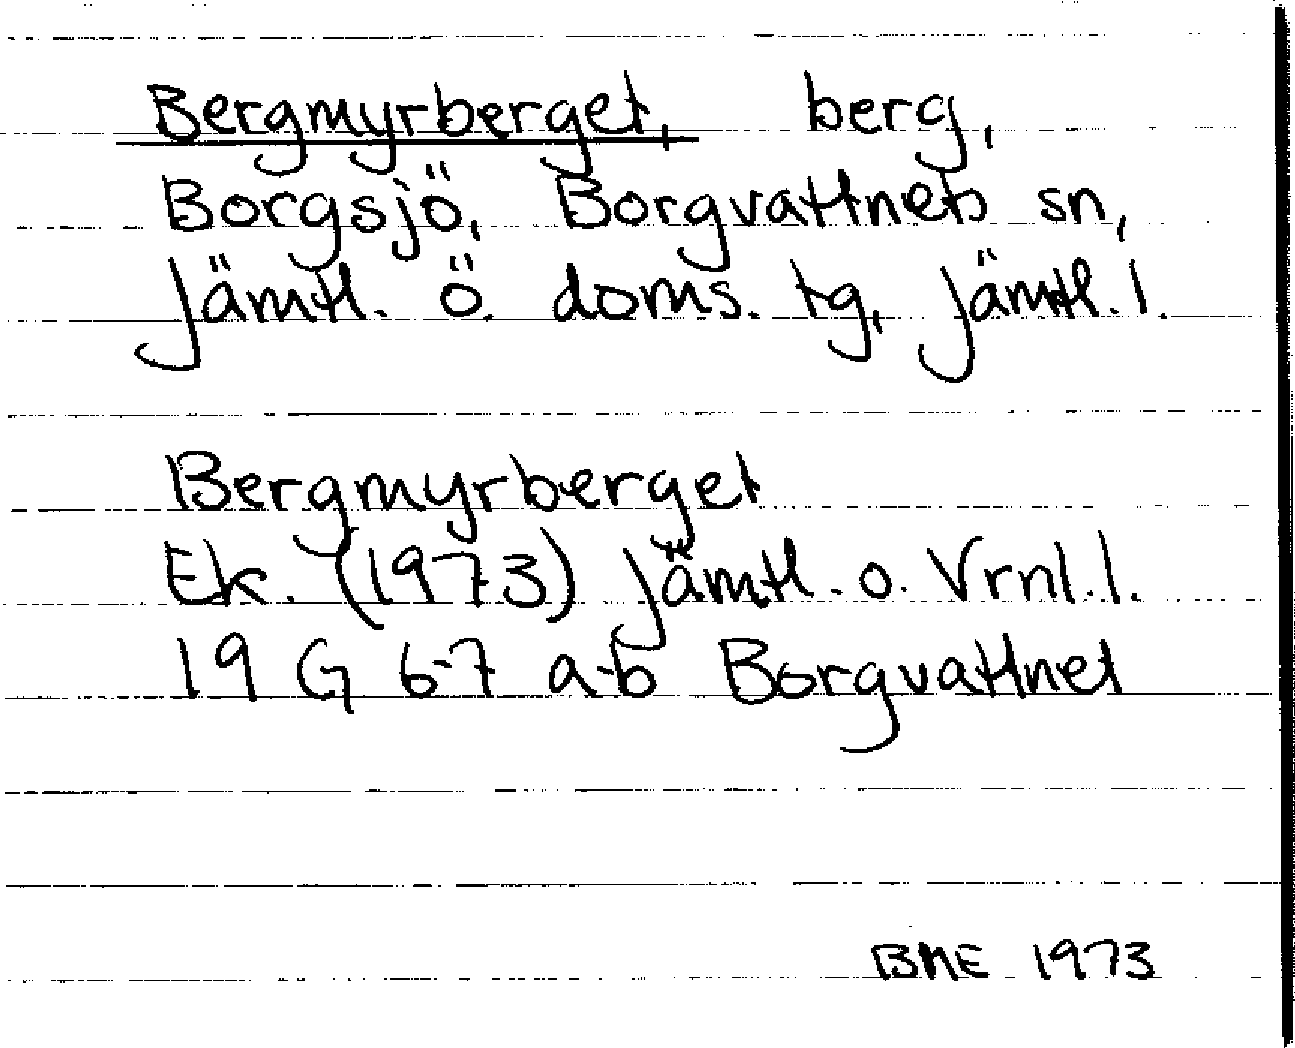 Bergmyrberget, berg,
Borgsjö, Borgvattnets sn,
Jämtl. ö. doms. tg, Jämtl. l.
Bergmyrberget
Ek. (1973) Jämtl. o. Vrnl. l.
19 G 6-7 a-b Borgvattnet
BME 1973